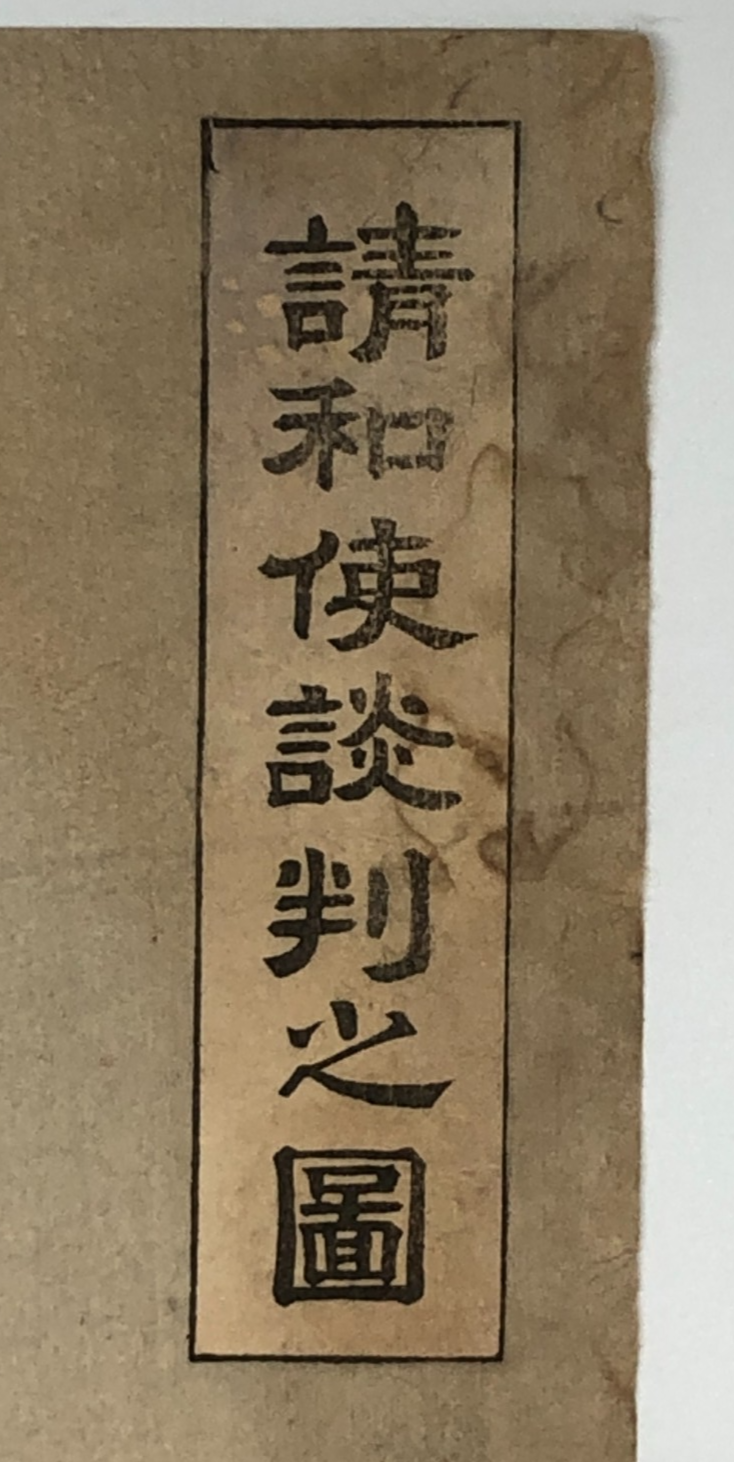 請和使談判之圖